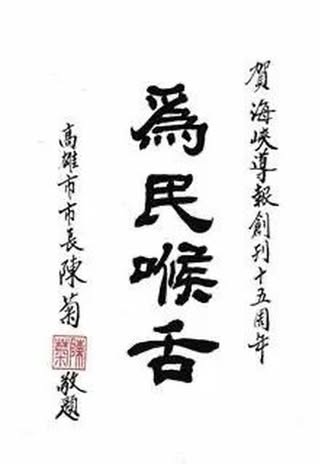 賀海峽導報創刊十五周年
為民喉舌
高雄市市長陳菊
陳菊
敬題